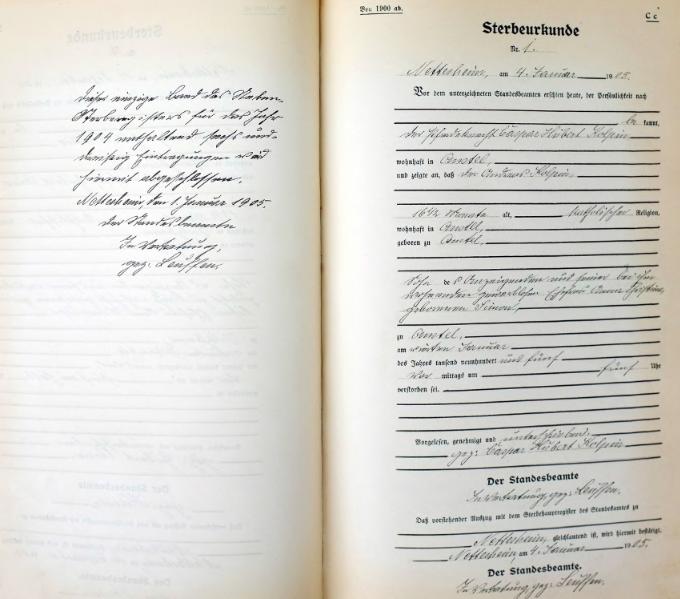 Dieser einzige Band des Neben-
Sterberegisters für das Jahr
1904 enthaltend sechs und
dreißig Eintragungen wird
hiermit abgeschlossen.
Nettersheim, den 1. Januar 1905.
Der Standesbeamte
In Vertretung,
gez. Leuffen.
Von 1900 ab.
C c
Sterbeurkunde
Nr. 1.
Nettersheim, am 4. Januar 1905.
Vor dem unterzeichneten Standesbeamten erschien heute, der Persönlichkeit nach
be kannt,
der Caspar Hubert
wohnhaft in
und zeigte an, daß der
16 1/2 Monate alt, katholischer Religion,
wohnhaft in
geboren zu
Sohn des Anzeigenden und seiner bei ihm
wohnenden gewerblosen Ehefrau Anna
geborenen Simon,
zu
am vierten Januar
des Jahres tausend neunhundert und fünf
Vor mittags um fünf Uhr
verstorben sei.
Vorgelesen, genehmigt und unterschrieben.
gez. Caspar Hubert
Der Standesbeamte
In Vertretung, gez. Leuffen.
Daß vorstehender Auszug mit dem Sterbehauptregister des Standesamtes zu
Nettersheim, gleichlautend ist, wird hiermit bestätigt.
Nettersheim, am 4. Januar 1905.
Der Standesbeamte.
In Vertretung, gez. Leuffen.